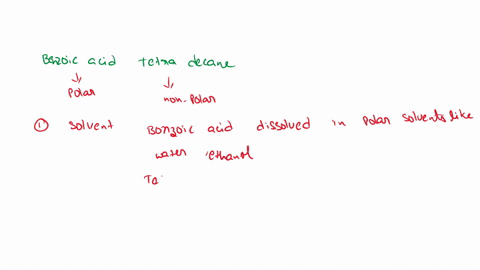 Benzoic acid tetra decane
↓ ↓
Polar non-Polar
① Solvent Bonzoic acid dissolved in Polar solvents like
water, ethanol
Ta